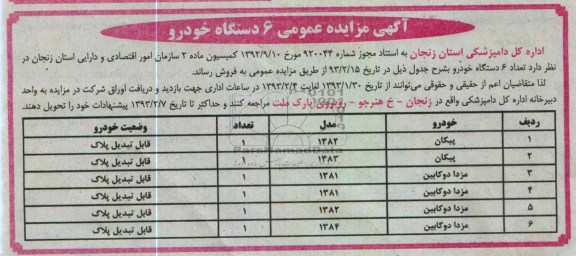 آگهی مزایده عمومی ۶ دستگاه خودرو
اداره کل دامپزشکی استان زنجان به استناد مجوز شماره ۹۲۰۰۴۴ مورخ ۱۳۹۲/۹/۱۰ کمیسیون ماده ۲ سازمان امور اقتصادی و دارایی استان زنجان در
نظر دارد تعداد ۶ دستگاه خودرو بشرح جدول ذیل در تاریخ ۹۳/۲/۱۵ از طریق مزایده عمومی به فروش رساند.
لذا متقاضیان اعم از حقیقی و حقوقی می‌توانند از تاریخ ۱۳۹۳/۱/۳۰ لغایت ۱۳۹۳/۲/۴ در ساعات اداری جهت بازدید و دریافت اوراق شرکت در مزایده به واحد
دبیرخانه اداره کل دامپزشکی واقع در زنجان - خ هنرجو - روبروی پارک ملت مراجعه کنند و حداکثر تا تاریخ ۱۳۹۳/۲/۷ پیشنهادات خود را تحویل دهند.
ردیف خودرو مدل تعداد وضعیت خودرو
۱ پیکان ۱۳۸۲ ۱ قابل تبدیل پلاک
۲ پیکان ۱۳۸۳ ۱ قابل تبدیل پلاک
۳ مزدا دوکابین ۱۳۸۱ ۱ قابل تبدیل پلاک
۴ مزدا دوکابین ۱۳۸۱ ۱ قابل تبدیل پلاک
۵ مزدا دوکابین ۱۳۸۲ ۱ قابل تبدیل پلاک
۶ مزدا دوکابین ۱۳۸۴ ۱ قابل تبدیل پلاک